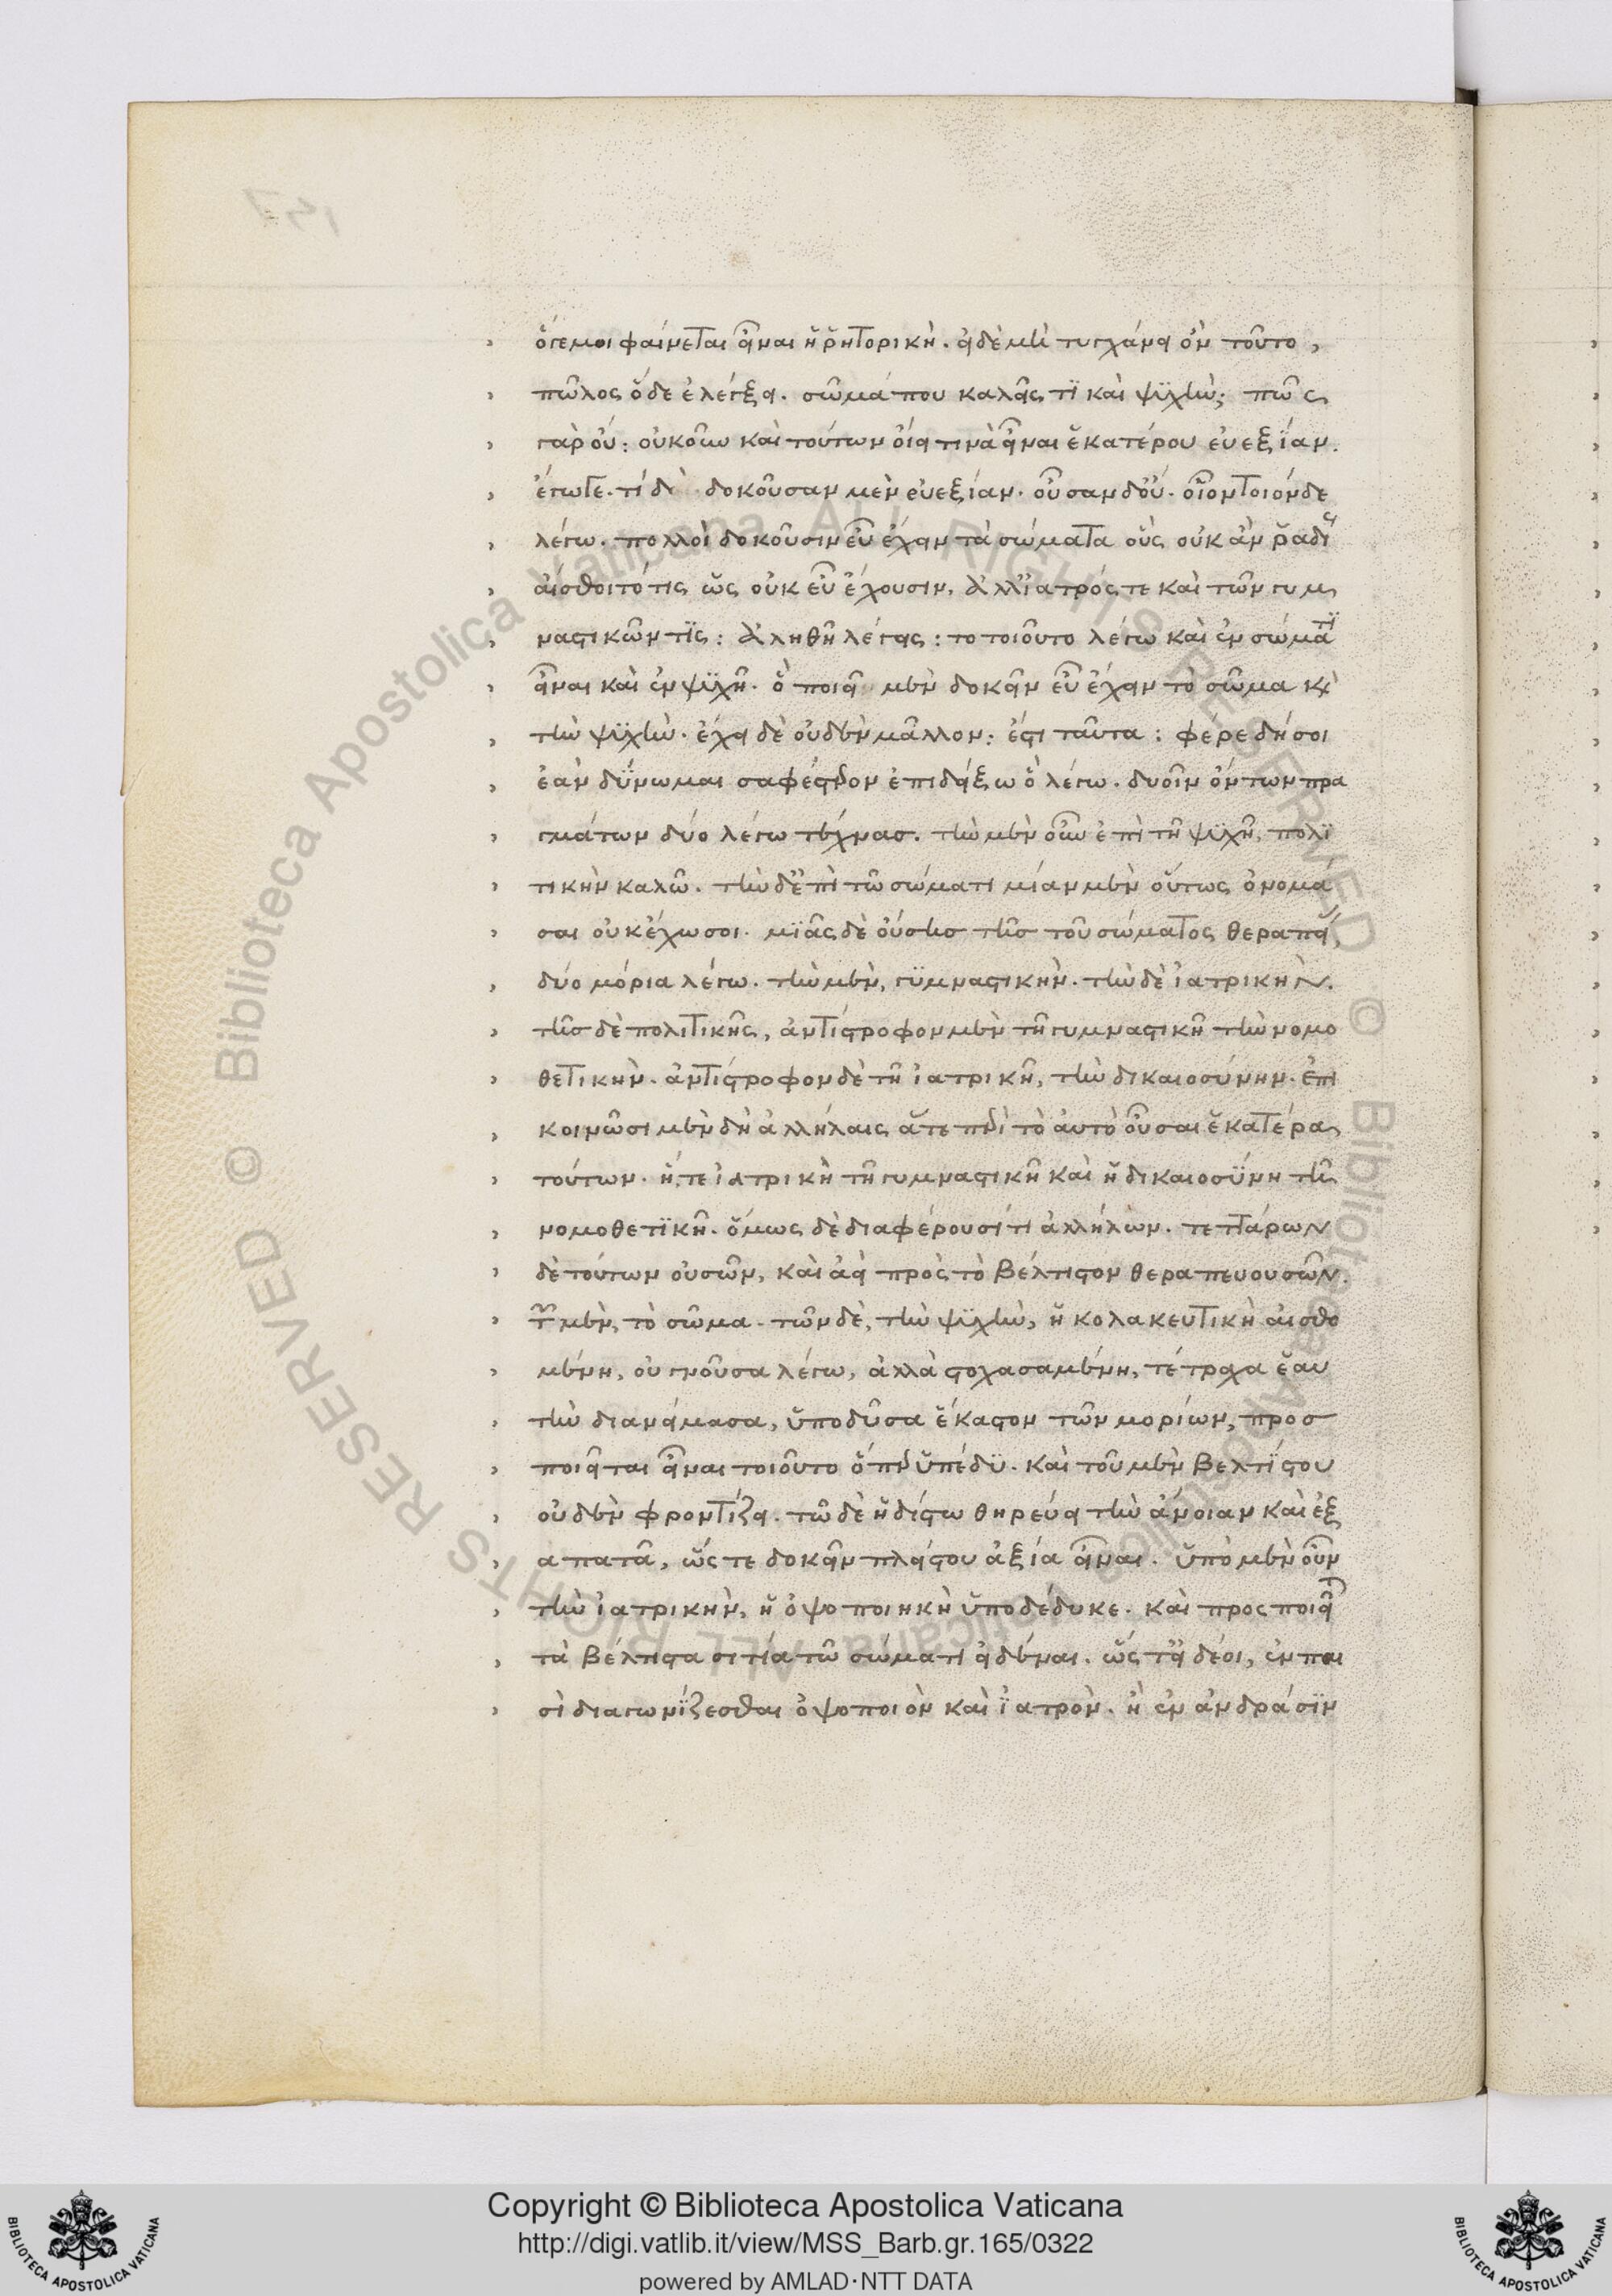 ὅγέμοι φαίνεται εἶναι ἡ ῥητορικὴ. εἰ δὲ μὴ τυγχάνει ὂν τοῦτο,
πῶλος ὅδε ἐλέγξει. σῶμά που καλεῖς τϊ καὶ ψϋχὴν; πῶς
γὰρ οὔ: οὐκοῦν καὶ τούτων οἴει τινὰ εἶναι ἑκατέρου εὐεξίαν.
ἔγωγε. τί δὲ δοκοῦσαν μὲν εὐεξίαν. οὖσαν δ' οὔ. οἷον τοιόνδε
λέγω. πολλοὶ δοκοῦσιν εὖ ἔχειν τὰ σώματα οὓς οὐκ ἂν ῥαδί
αἴσθοιτό τις ὡς οὐκ εὖ ἔχουσιν. ἀλλ' ἰατρός τε καὶ τῶν γυμ
ναστικῶν τϊς: ἀληθῆ λέγεις: το τοιοῦτο λέγω καὶ ἐν σώματϊ
εἶναι καὶ ἐν ψϋχῆ. ὃ ποιεῖ μὲν δοκεῖν εὖ ἔχειν τὸ σῶμα κ̀
τὴν ψϋχὴν. ἔχει δὲ οὐδὲν μᾶλλον: ἔστι ταῦτα: φέρε δή σοι
ἐὰν δΰνωμαι σαφέστερον ἐπιδείξω ὃ λέγω. δυοῖν ὄντων πρα
γμάτων δύο λέγω τέχνασ. τὴν μὲν οὖν ἐπὶ τῆ ψϋχῆ, πολϊ
τικὴν καλῶ. τὴν δ' ἐπὶ τῶ σώματι μίαν μὲν οὕτως ὀνομά
σαι οὐκ ἔχω σοι. μϊᾶς δὲ οὔσησ τῆσ τοῦ σώματος θεραπεί
δύο μόρια λέγω. τὴν μὲν, γϋμναστικὴν. τὴν δὲ ἰατρικὴν.
τῆσ δὲ πολιτικῆς, ἀντίστροφον μὲν τῆ γυμναστικῆ τὴν νομο
θετικὴν. ἀντίστροφον δὲ τῆ ἰατρικῆ, τὴν δικαιοσύνην. ἐπι
κοινῶσι μὲν δὴ ἀλλήλαις ἅτε περὶ τὸ ἀυτὸ οὖσαι ἑκατέρα
τούτων. ἥ, τε ἰατρικὴ τῆ γυμναστικῆ καὶ ἡ δικαιοσΰνη τῆ
νομοθετϊκῆ. ὅμως δὲ διαφέρουσί τι ἀλλήλων. τεττάρων
δὲ τούτων οὐσῶν, καὶ ἀεὶ πρὸς τὸ βέλτιστον θεραπευουσῶν.
τῶν μὲν, τὸ σῶμα. τῶν δὲ, τὴν ψϋχὴν, ἡ κολακευτικὴ αἰσθο
μένη, οὐ γνοῦσα λέγω, ἀλλὰ στοχασαμένη, τέτραχα ἑαυ
τὴν διανείμασα, ὑποδῦσα ἕκαστον τῶν μορίων, προσ
ποιεῖται εἶναι τοιοῦτο ὅπερ ὑπέδϋ. καὶ τοῦ μὲν βελτΐστου
οὐδὲν φροντίζει. τῶ δὲ ἡδίστω θηρεύει τὴν ἄνοιαν καὶ ἐξ
απατᾶ, ὥς τε δοκεῖν πλείστου ἀξία εἶναι. ὑπὸ μὲν οὖν
τὴν ἰατρικὴν, ἡ ὀψοποιηκὴ ὑποδέδυκε. καὶ προς ποιεῖτ
τὰ βέλτιστα σιτία τῶ σώματι εἰδέναι. ὥς τ' εἰ δέοι, ἐν παι
σὶ διαγωνΐζεσθαι ὀψοποιὸν καὶ ἰατρὸν. ἢ ἐν ἀνδράσϊν
Copyright © Biblioteca Apostolica Vaticana
http://digi.vatlib.it/view/MSS_Barb.gr.165/0322
powered by AMLAD·NTT DATA